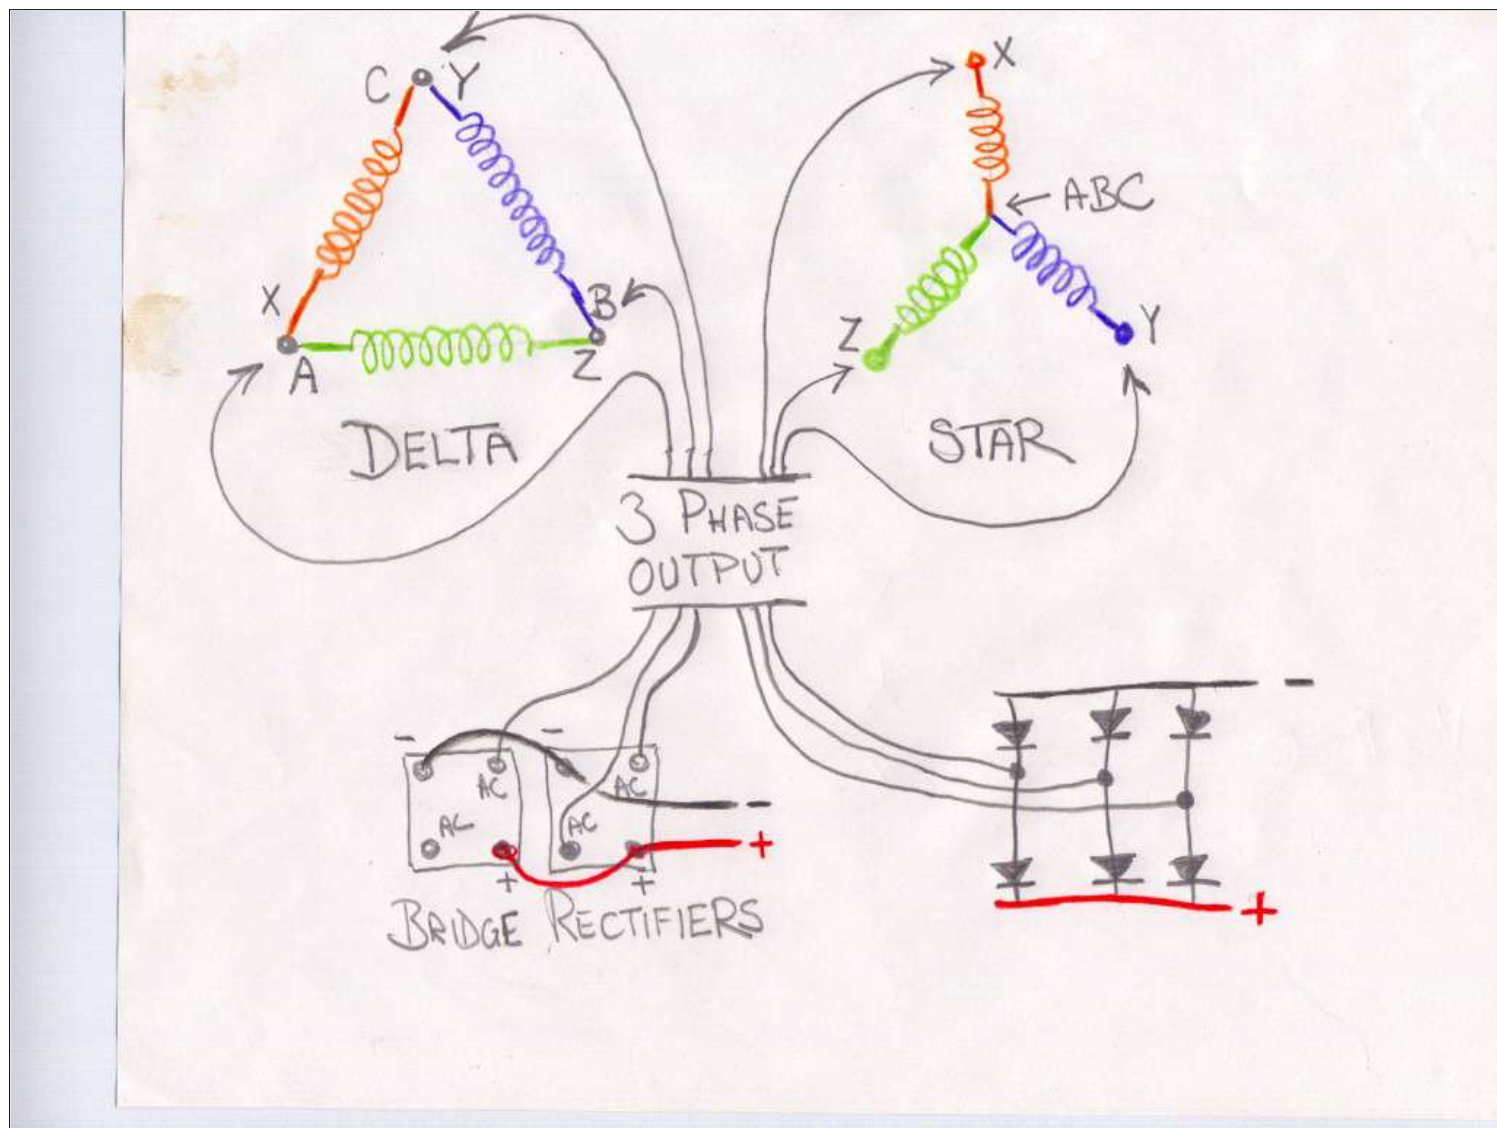 C Y
X
A
B
Z
DELTA
X
← ABC
Z
Y
STAR
3 PHASE
OUTPUT
- -
AC AC
AC AC
-
+
+ +
BRIDGE RECTIFIERS
-
+